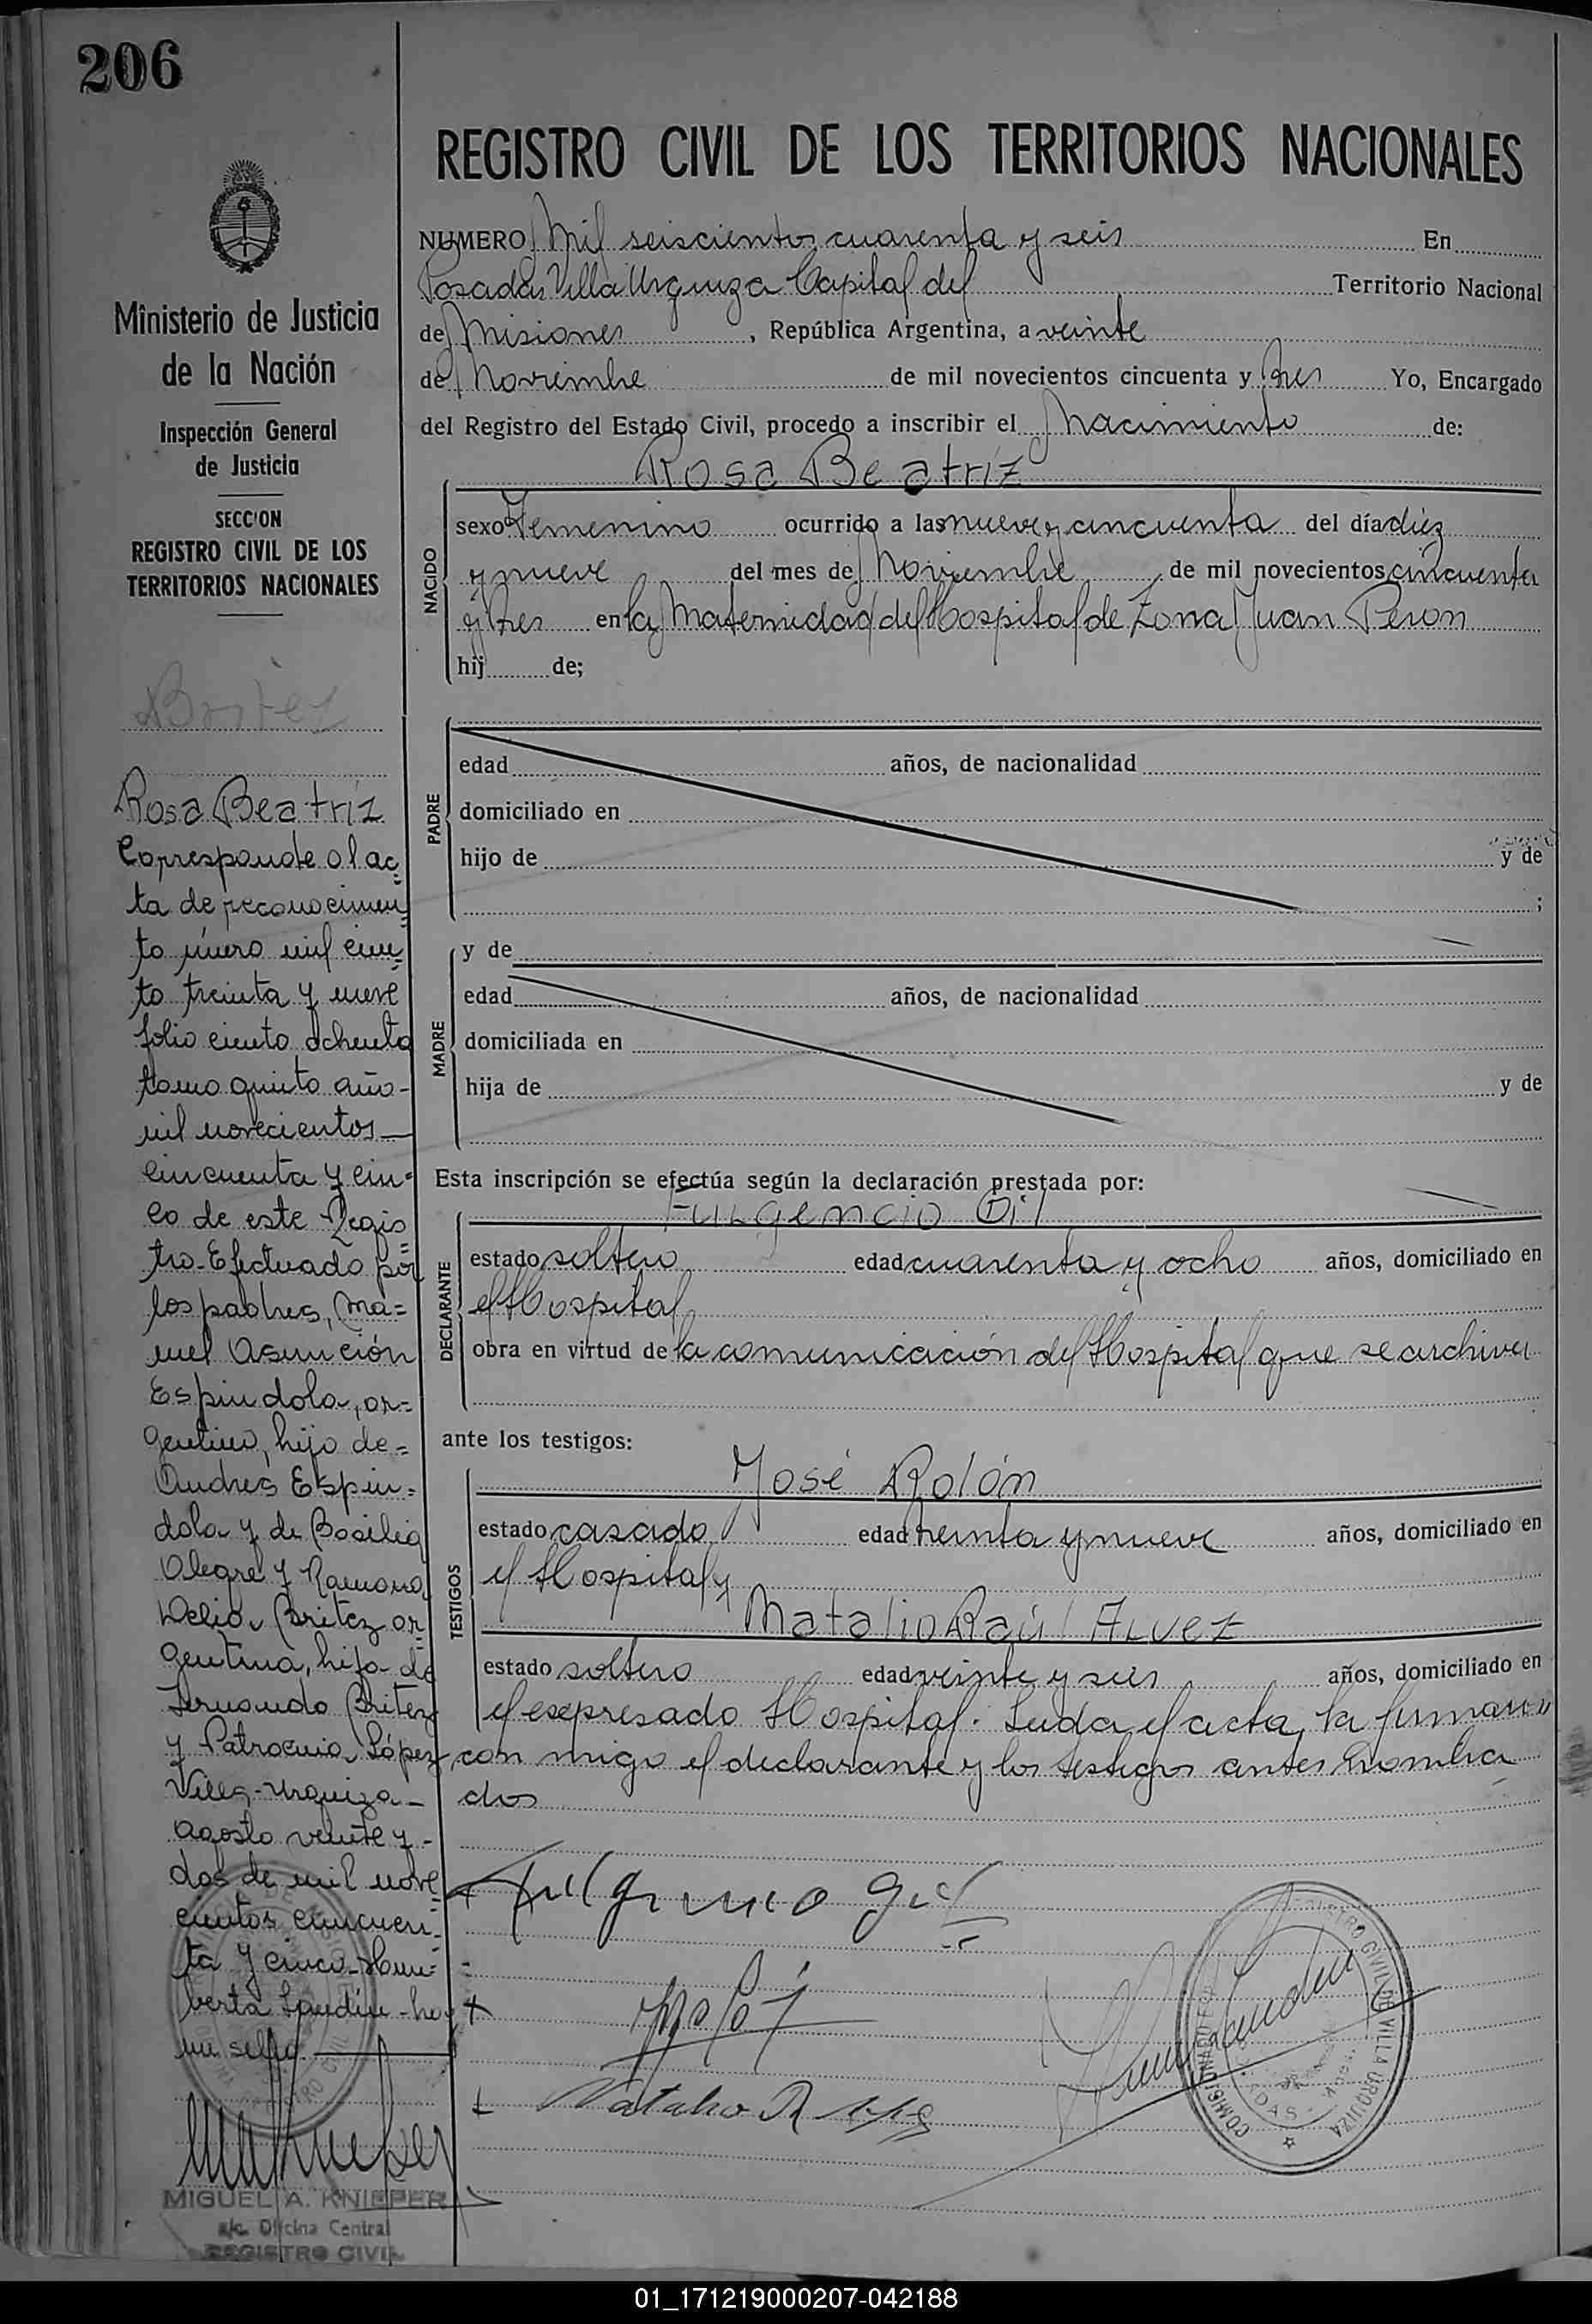 206
REGISTRO CIVIL DE LOS TERRITORIOS NACIONALES
Ministerio de Justicia
de la Nación
Inspección General
de Justicia
SECCION
REGISTRO CIVIL DE LOS
TERRITORIOS NACIONALES
NUMERO Mil seiscientos cuarenta y seis En
Posadas Villa Urquiza Capital del Territorio Nacional
de Misiones, República Argentina, a veinte
de Noviembre de mil novecientos cincuenta y tres Yo, Encargado
del Registro del Estado Civil, procedo a inscribir el Nacimiento de:
Rosa Beatríz
NACIDO
sexo Femenino ocurrido a las nueve y cincuenta del día diez
y nueve del mes de Noviembre, de mil novecientos cincuenta
y tres en la Maternidad del Hospital de Zona Juan Peron
hij de;
PADRE
edad años, de nacionalidad
domiciliado en
hijo de y de
;
MADRE
y de
edad años, de nacionalidad
domiciliada en
hija de y de
Esta inscripción se efectúa según la declaración prestada por:
Fulgencio Gil
DECLARANTE
estado soltero edad cuarenta y ocho años, domiciliado en
el Hospital
obra en virtud de la comunicación del Hospital que se archiva
ante los testigos:
José Rolón
TESTIGOS
estado casado edad treinta y nueve años, domiciliado en
el Hospital y
Natalio Raúl Alvez
estado soltero edad veinte y seis años, domiciliado en
el expresado Hospital. Leida el acta, la firman
con migo el declarante y los testigos antes nombra
dos
Fulgencio Gil
Natalio R
REGISTRO CIVIL DE VILLA URQUIZA
Britez
Rosa Beatríz
Corresponde al ac
ta de reconocimien
to número mil cien
to treinta y nueve
folio ciento ochenta
tomo quinto año-
mil novecientos
cincuenta y cin=
co de este Regis
tro-Efectuado por
los padres, Ma=
nuel Asunción
Espindola, ar=
gentino, hijo de=
Andrés Espin=
dola y de Basilia
Alegre y Ramona
Delia Britez ar
gentina, hija de
Fernando Britez
y Patrocinia López
Villa-Urquiza-
agosto veinte y-
dos de mil nove
cientos cincuen
ta y cinco-Hum=
berto Landin-hay
un sello.
MIGUEL A. KNIEPER
a/c. Oficina Central
REGISTRO CIVIL
01_171219000207-042188